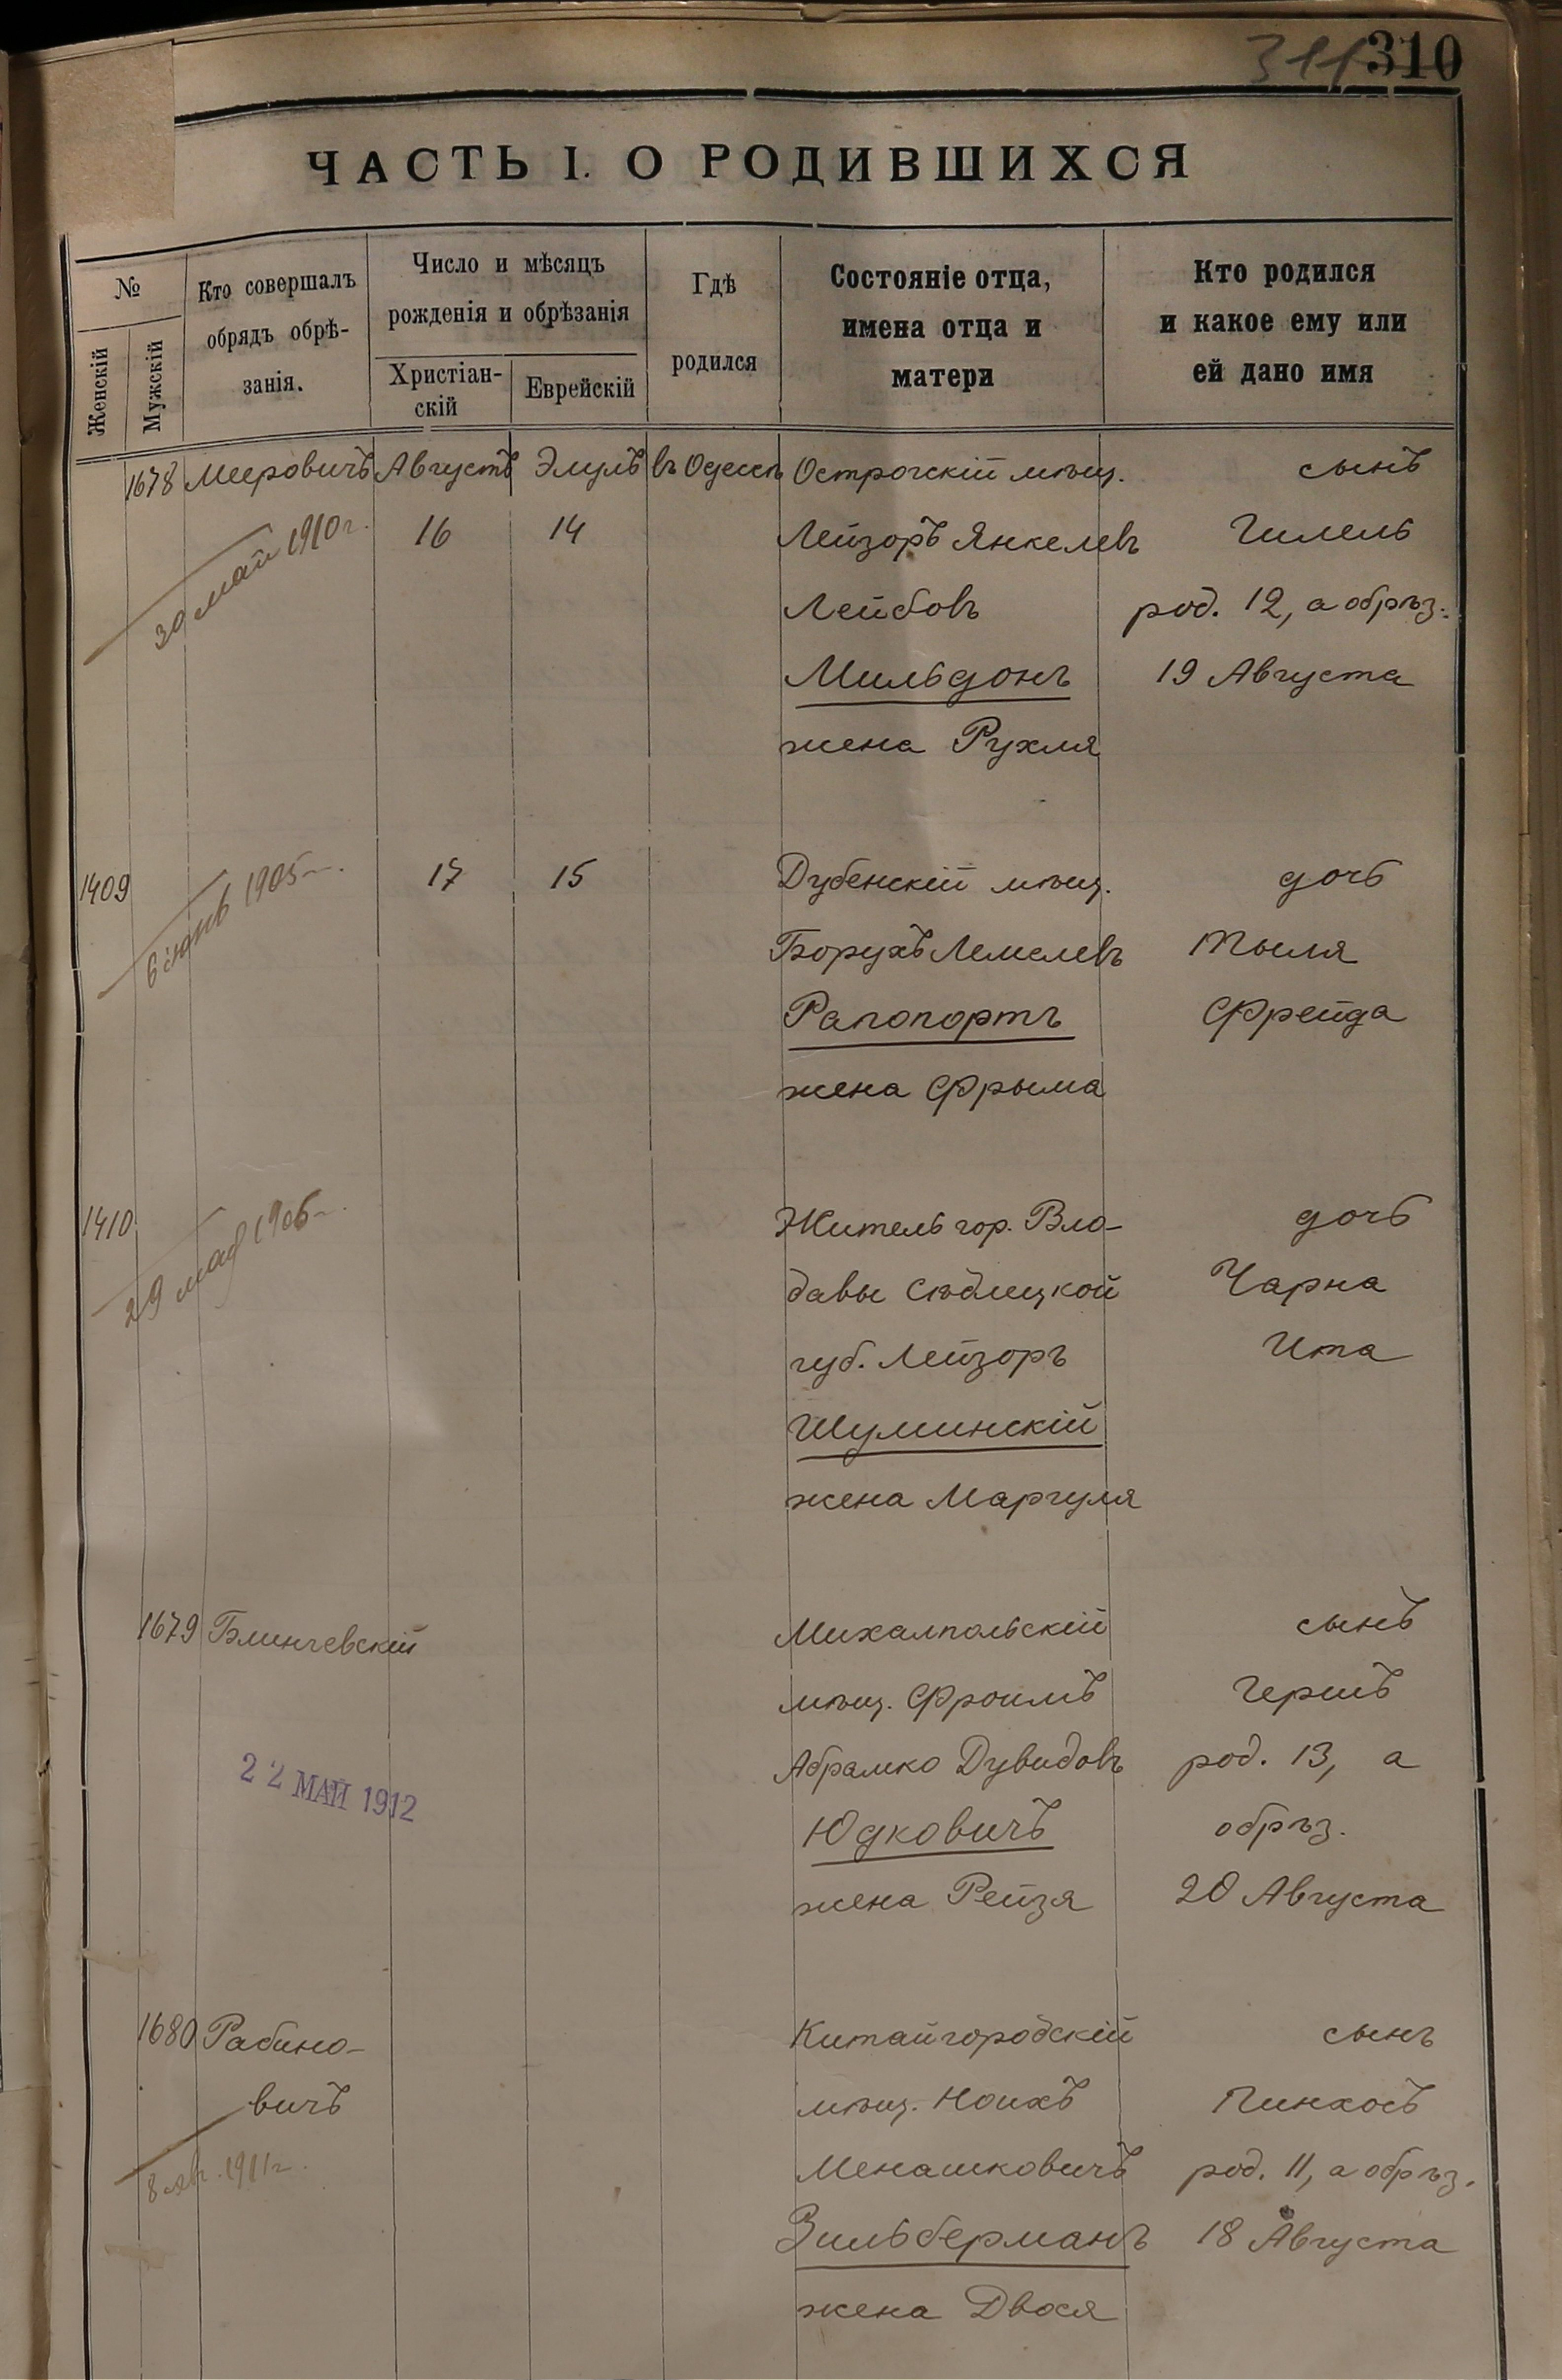 311 310
ЧАСТЬ I. О РОДИВШИХСЯ
№
Женскій
Мужскій
Кто совершалъ
обрядъ обрѣ-
занія.
Число и мѣсяцъ
рожденія и обрѣзанія
Христіан-
скій
Еврейскій
Гдѣ
родился
Состояніе отца,
имена отца и
матери
Кто родился
и какое ему или
ей дано имя
1678 Мееровичъ Августъ Элулъ въ Одессѣ Острогскій мѣщ. сынъ
30 май 1910 г. 16 14 Лейзоръ Янкелевъ Гилель
Лейбовъ род. 12, а обрѣз.
Мильдонъ 19 Августа
жена Рухля
1409 17 15 Дубенскій мѣщ. дочь
6 іюнь 1905 Борухъ Лемелевъ Тыля
Рапопортъ Фрейда
жена Фрыма
1410 Житель гор. Вло- дочь
29 май 1906 давы Сѣдлецкой Чарна
губ. Лейзоръ Ита
Шуминскій
жена Маргуля
1679 Блинчевскій Михалпольскій сынъ
мѣщ. Фроимъ Гершъ
Абрамко Дувидовъ род. 13, а
22 МАЙ 1912
Юдковичъ обрѣз.
жена Рейзя 20 Августа
1680 Рабино- Китайгородскій сынъ
вичъ мѣщ. Ноихъ Пинхосъ
8 янв. 1911 г. Менашковичъ род. 11, а обрѣз.
Зильберманъ 18 Августа
жена Двося